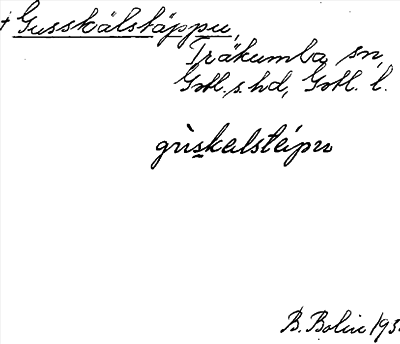 † Gusskälstäppu,
Träkumba sn,
Gotl. s. hd, Gotl. l.
grìskelstéipu
B. Bolin 193